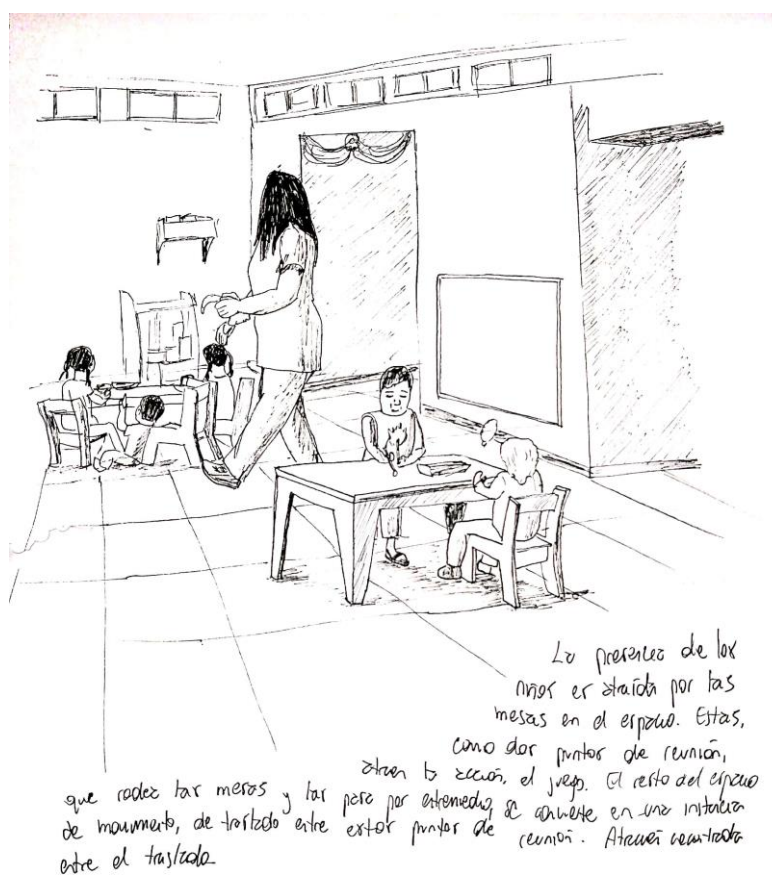 La presencia de los
niños es atraída por las
mesas en el espacio. Estas,
como dos puntos de reunión,
atraen la acción, el juego. El resto del espacio
que rodea las mesas y las pasa por entremedio, se convierte en una instancia
de movimiento, de traslado entre estos puntos de reunión. Atravesi
entre el traslado